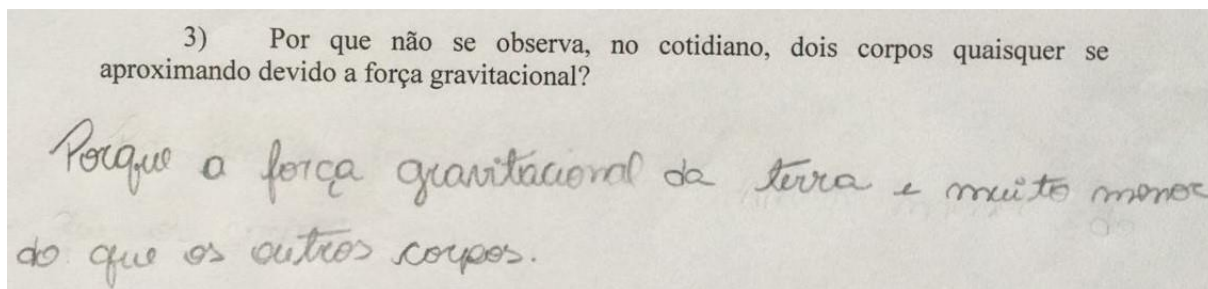 3) Por que não se observa, no cotidiano, dois corpos quaisquer se
aproximando devido a força gravitacional?
Porque a força gravitacional da terra e muito menor
do que os outros corpos.